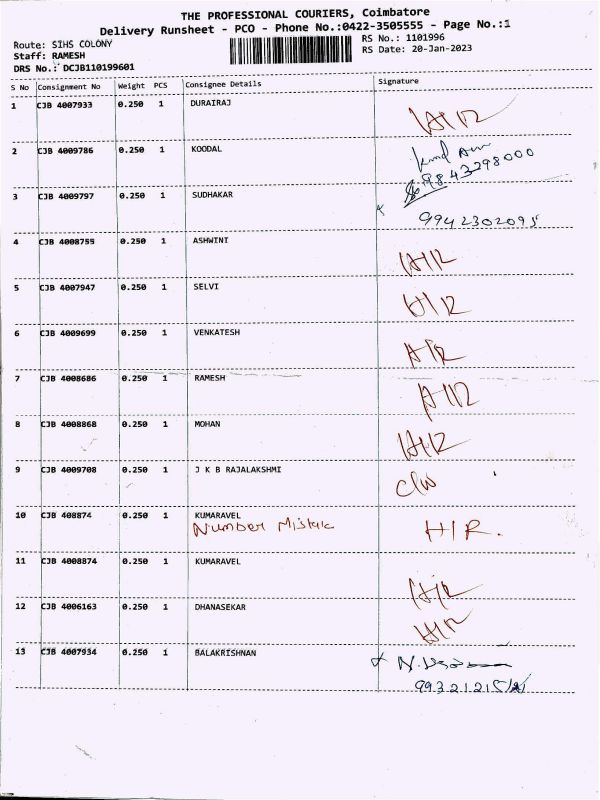 THE PROFESSIONAL COURIERS, Coimbatore
Delivery Runsheet - PCO - Phone No.:0422-3505555 - Page No.:1
Route: SIHS COLONY
RS No.: 1101996
Staff: RAMESH
RS Date: 20-Jan-2023
DRS No.: DCJB110199601
S No Consignment No Weight PCS Consignee Details Signature
1 CJB 4007933 0.250 1 DURAIRAJ H/R
2 CJB 4009786 0.250 1 KOODAL
9843298000
3 CJB 4009797 0.250 1 SUDHAKAR
9942302095
4 CJB 4008755 0.250 1 ASHWINI H/R
5 CJB 4007947 0.250 1 SELVI H/R
6 CJB 4009699 0.250 1 VENKATESH H/R
7 CJB 4008686 0.250 1 RAMESH H/R
8 CJB 4008868 0.250 1 MOHAN H/R
9 CJB 4009708 0.250 1 J K B RAJALAKSHMI
10 CJB 408874 0.250 1 KUMARAVEL
Number Mistake H/R.
11 CJB 4008874 0.250 1 KUMARAVEL H/R
12 CJB 4006163 0.250 1 DHANASEKAR H/R
13 CJB 4007934 0.250 1 BALAKRISHNAN